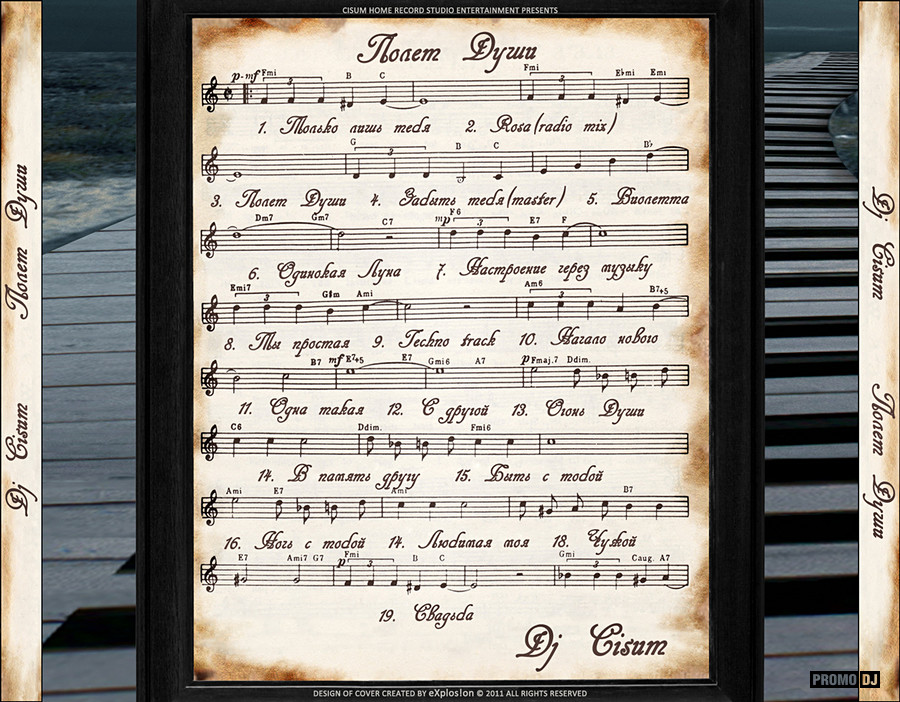 CISUM HOME RECORD STUDIO ENTERTAINMENT PRESENTS
Полет Души
p-mf Fmi 3 B C Fmi 3 E♭mi Emi
1. Только лишь тебя 2. Rosa(radio mix)
G 3 B C B♭
3. Полет Души 4. Забыть тебя(master) 5. Виолетта
Dm7 Gm7 C7 mp F6 3 E7 F
6. Одинокая Луна 7. Настроение через музыку
Emi7 3 G#m Ami Am6 3 B7+5
8. Ты простая 9. Techno track 10. Начало нового
B7 mf E7+5 E7 Gmi6 A7 p Fmaj.7 Ddim.
11. Одна такая 12. С другой 13. Огонь Души
C6 Ddim. Fmi6
14. В память другу 15. Быть с тобой
Ami E7 Ami B7
16. Ночь с тобой 14. Любимая моя 18. Чужой
E7 Ami7 G7 p Fmi 3 B C Gmi 3 Caug. A7
19. Свадьба
Dj Cisum
DESIGN OF COVER CREATED BY eXplosIon © 2011 ALL RIGHTS RESERVED
Dj Cisum Полет Души
Dj Cisum Полет Души
PROMO DJ